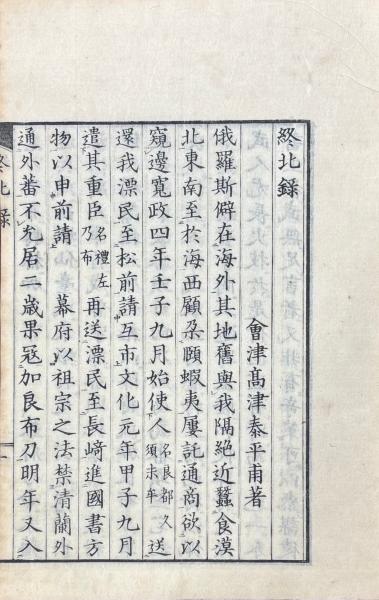 終北録
會津髙津泰平甫著
俄羅斯僻在海外其地舊與我隔絶近蠶食漠
北東南至於海西顧朶頤蝦夷屢託通商欲以
窺邊寛政四年壬子九月始使人名良都久須未牟送
還我漂民至松前請互市文化元年甲子九月
遣其重臣名禮左乃布再送漂民至長﨑進國書方
物以申前請　幕府以祖宗之法禁清蘭外
通外蕃不允居二歳果寇加良布刀明年又入
終北録